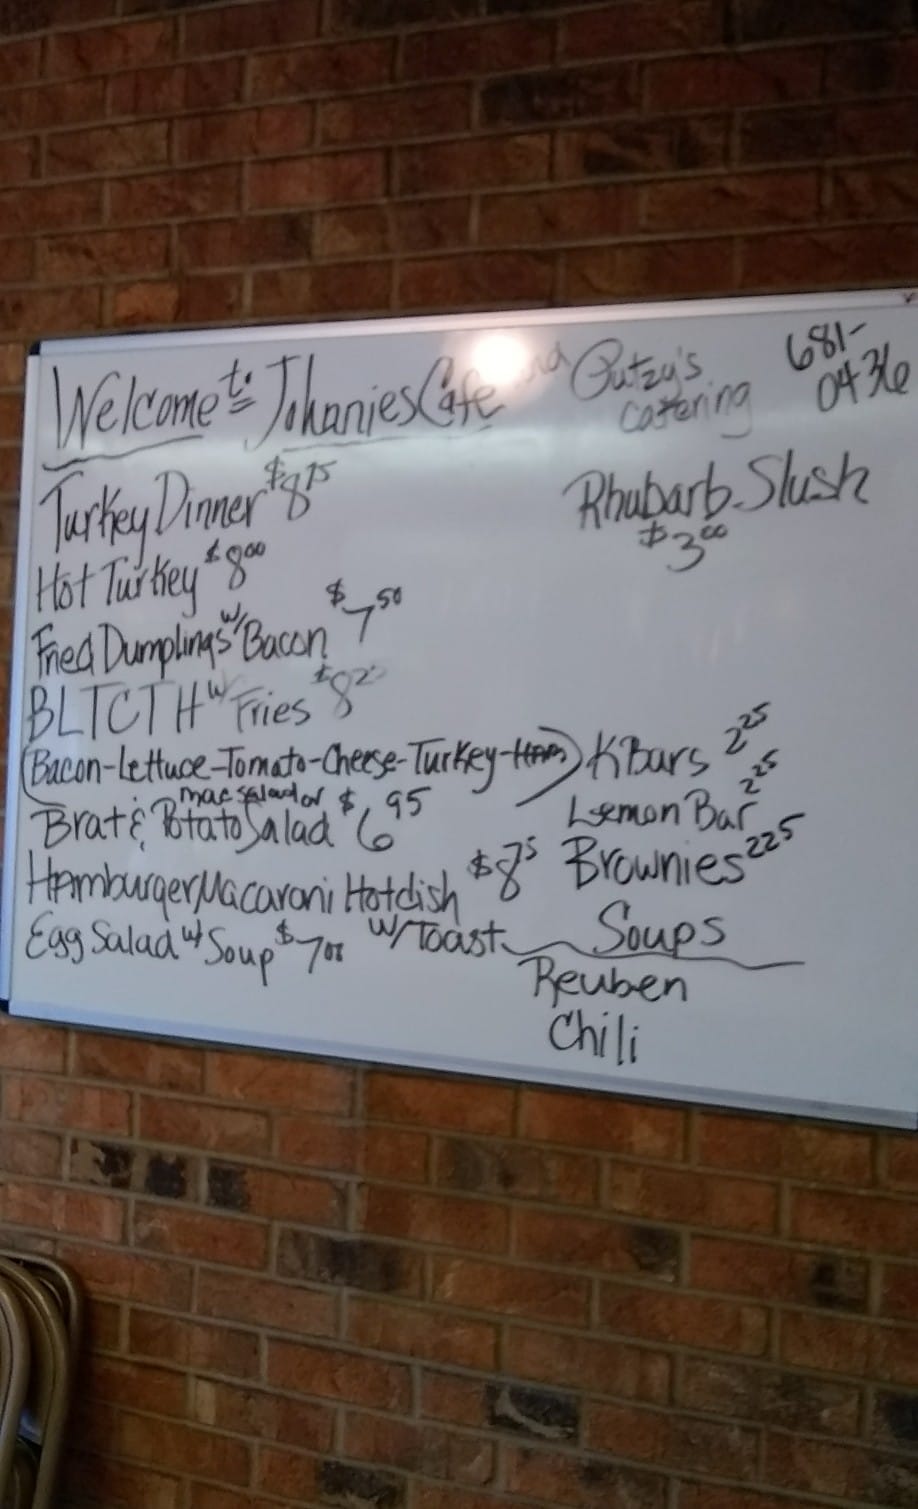 Welcome to: Johanies Cafe and Putzy's
catering
681-
0436
Turkey Dinner $8 75
Hot Turkey $8 00
Fried Dumplings w/ Bacon $7 50
BLTCTH w/ Fries $8 25
(Bacon-Lettuce-Tomato-Cheese-Turkey-Ham)
mac salad or
Brat & Potato Salad $6 95
Hamburger Macaroni Hotdish $8 75
w/Toast
Egg Salad w/ Soup $7 00
Rhubarb Slush
$3 00
KBars 2 25
Lemon Bar 2 25
Brownies 2 25
Soups
Reuben
Chili